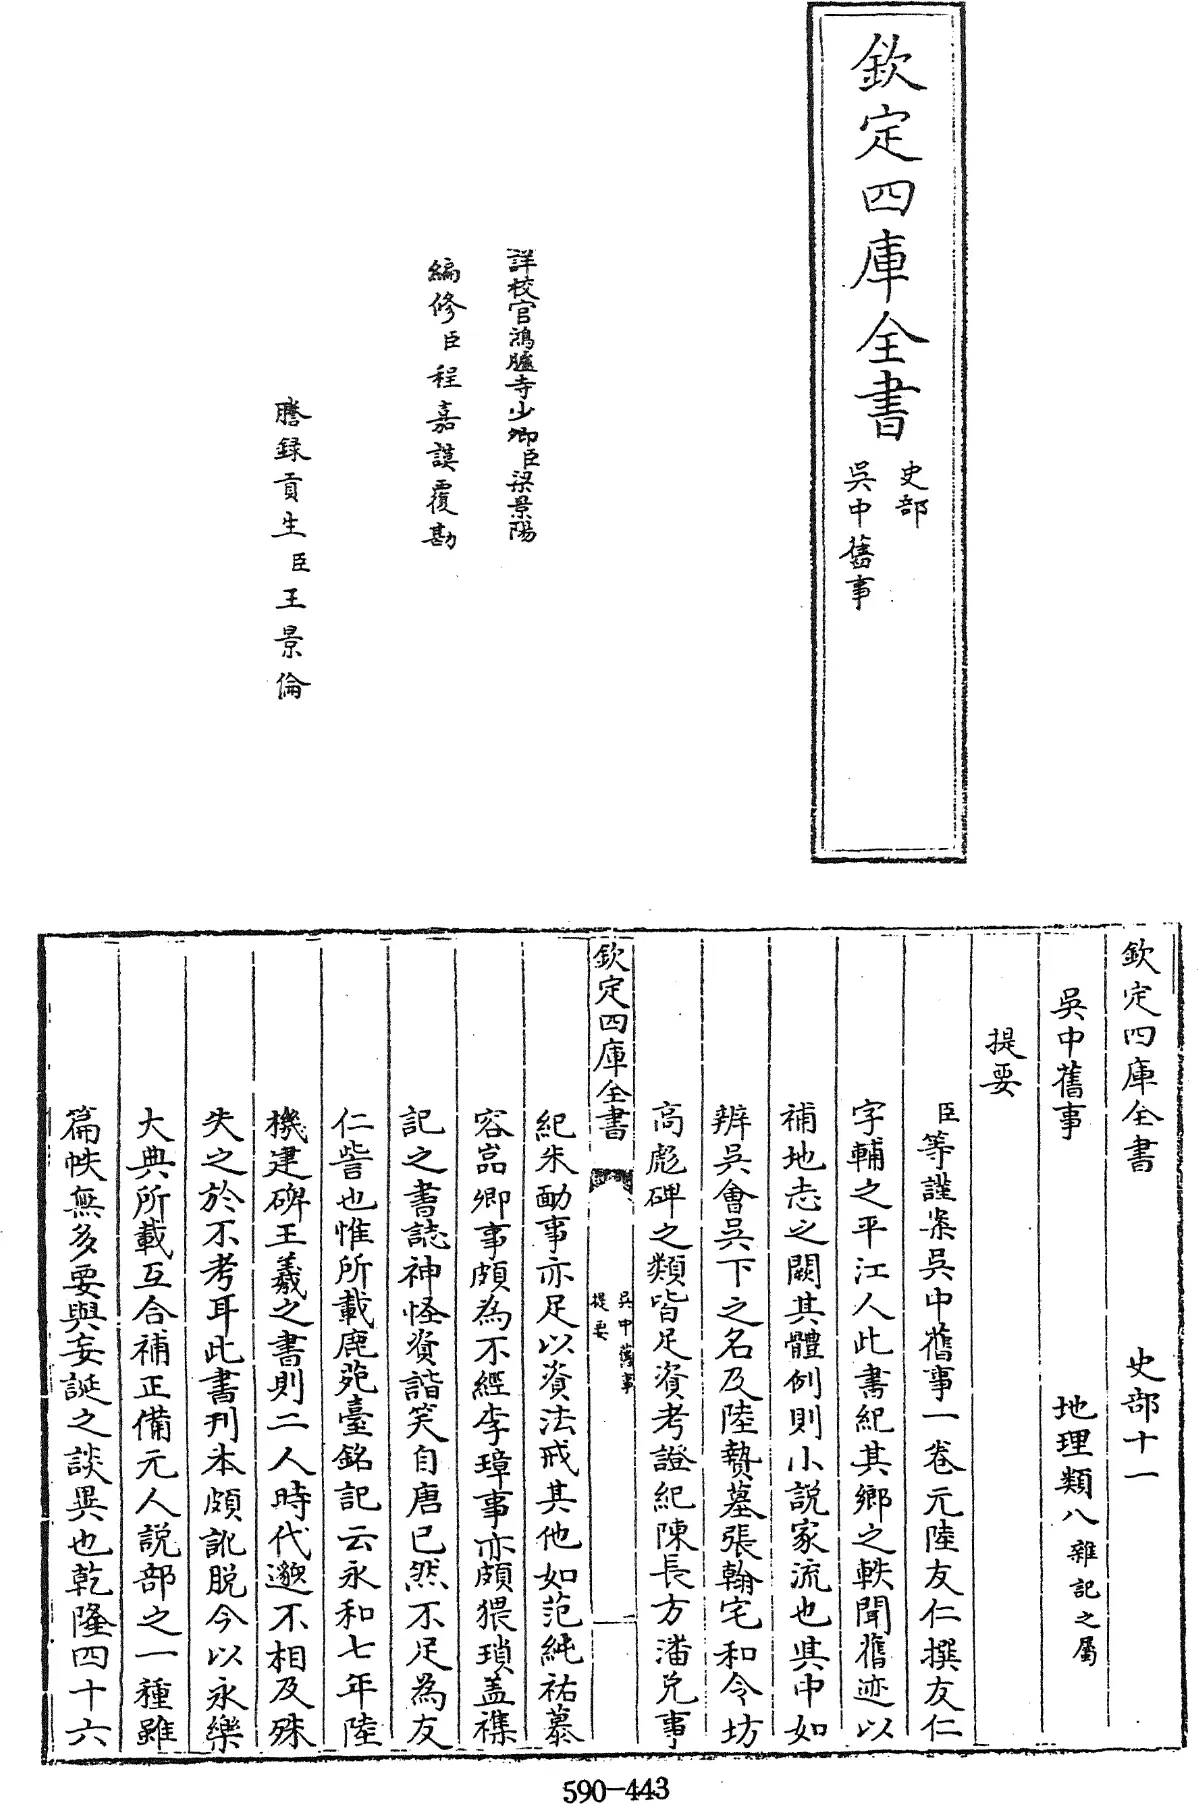 欽定四庫全書
史部
吳中舊事
詳校官鴻臚寺少卿臣梁景陽
編修臣程嘉謨覆勘
謄録貢生臣王景倫
欽定四庫全書 史部十一
吳中舊事 地理類八雜記之屬
提要
臣等謹案吳中舊事一卷元陸友仁撰友仁
字輔之平江人此書紀其鄉之軼聞舊迹以
補地志之闕其體例則小説家流也其中如
辨吳會吳下之名及陸贄墓張翰宅和令坊
高彪碑之類皆足資考證紀陳長方潘兌事
欽定四庫全書
吳中舊事
提要
一
紀朱勔事亦足以資法戒其他如范純祐慕
容嵓卿事頗為不經李璋事亦頗猥瑣盖襍
記之書誌神怪資諧笑自唐已然不足為友
仁訾也惟所載鹿苑臺銘記云永和七年陸
機建碑王羲之書則二人時代邈不相及殊
失之於不考耳此書刋本頗訛脱今以永樂
大典所載互合補正備元人説部之一種雖
篇帙無多要與妄誕之談異也乾隆四十六
590-443